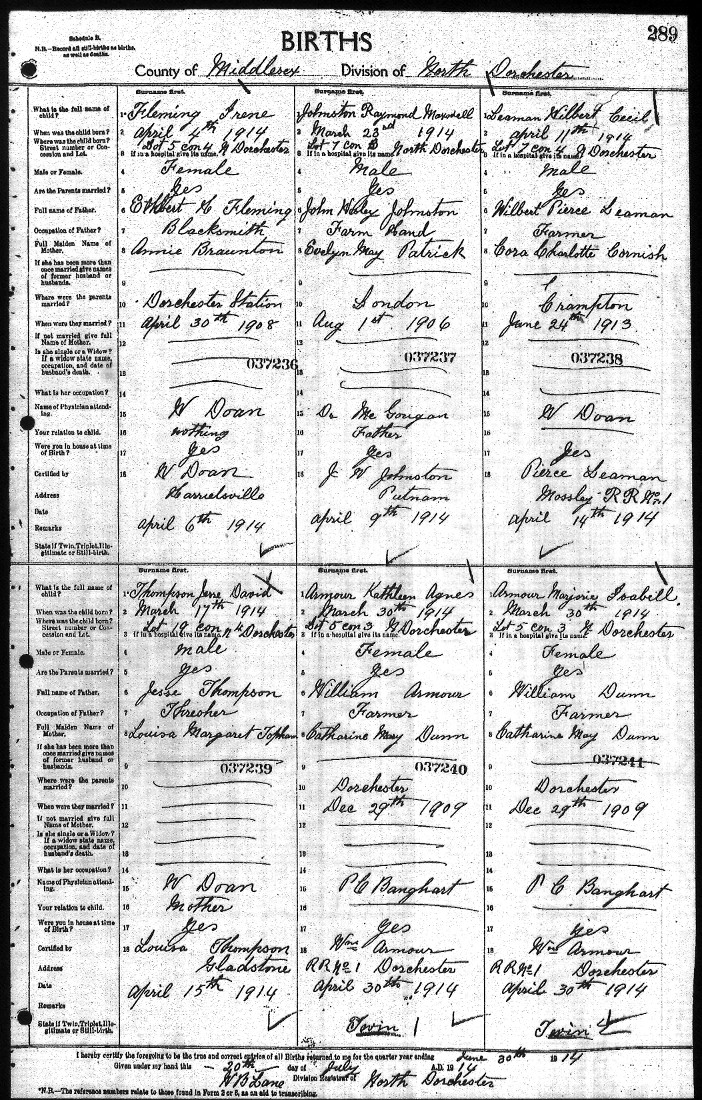 Schedule B.
N.B.—Record all still-births as births, as well as deaths.
BIRTHS
289
County of Middlesex Division of North Dorchester
Surname first. Surname first. Surname first.
What is the full name of child? 1 Fleming Irene 1 Johnston Raymond Maxwell 1 Leaman Wilbert Cecil
When was the child born? 2 April 4th 1914 2 March 23rd 1914 2 April 11th 1914
Where was the child born? Street number or Concession and Lot. Lot 5 con 4 N Dorchester Lot 7 Con B North Dorchester Lot 7 con 4 N Dorchester
3 If in a hospital give its name. 3 If in a hospital give its name. 3 If in a hospital give its name.
Male or Female. 4 Female 4 Male 4 Male
Are the Parents married? 5 Yes 5 Yes 5 Yes
Full name of Father. 6 Ethbert H Fleming 6 John Wesley Johnston 6 Wilbert Pierce Leaman
Occupation of Father? 7 Blacksmith 7 Farm Hand 7 Farmer
Full Maiden Name of Mother. 8 Annie Braunton 8 Evelyn May Patrick 8 Cora Charlotte Cornish
If she has been more than once married give names of former husband or husbands. 9 9 9
Where were the parents married? 10 Dorchester Station 10 London 10 Crampton
When were they married? 11 April 30th 1908 11 Aug 1st 1906 11 June 24th 1913
If not married give full Name of Mother. 12 12 12
Is she single or a Widow? If a widow state name, occupation, and date of husband's death. 13 037236 13 037237 13 037238
What is her occupation? 14 14 14
Name of Physician attending. 15 W Doan 15 Dr McGougan 15 W Doan
Your relation to child. 16 nothing 16 Father 16
Were you in house at time of Birth? 17 Yes 17 Yes 17 Yes
Certified by 18 W Doan 18 J W Johnston 18 Pierce Leaman
Address Harrietsville Putnam Mossley RR No. 1
Date April 6th 1914 April 9th 1914 April 14th 1914
Remarks
State if Twin, Triplet, Illegitimate or Still-birth.
Surname first. Surname first. Surname first.
What is the full name of child? 1 Thompson Jene David 1 Armour Kathleen Agnes 1 Armour Marjorie Isabell
When was the child born? 2 March 17th 1914 2 March 30th 1914 2 March 30th 1914
Where was the child born? Street number or Concession and Lot. Lot 19 con 4 N Dorchester Lot 5 con 3 N Dorchester Lot 5 con. 3 N Dorchester
3 If in a hospital give its name. 3 If in a hospital give its name. 3 If in a hospital give its name.
Male or Female. 4 Male 4 Female 4 Female
Are the Parents married? 5 Yes 5 Yes 5 Yes
Full name of Father. 6 Jesse Thompson 6 William Armour 6 William Dunn
Occupation of Father? 7 Thresher 7 Farmer 7 Farmer
Full Maiden Name of Mother. 8 Louisa Margaret Topham 8 Catharine May Dunn 8 Catharine May Dunn
If she has been more than once married give names of former husband or husbands. 9 037239 9 037240 9 037241
Where were the parents married? 10 10 Dorchester 10 Dorchester
When were they married? 11 11 Dec 29th 1909 11 Dec 29th 1909
If not married give full Name of Mother. 12 12 12
Is she single or a Widow? If a widow state name, occupation, and date of husband's death. 13 13 13
What is her occupation? 14 14 14
Name of Physician attending. 15 W Doan 15 P C Banghart 15 P C Banghart
Your relation to child. 16 Mother 16 16
Were you in house at time of Birth? 17 Yes 17 Yes 17 yes
Certified by 18 Louisa Thompson 18 Wm Armour 18 Wm Armour
Address Gladstone RR No 1 Dorchester RR No 1 Dorchester
Date April 15th 1914 April 30th 1914 April 30th 1914
Remarks
State if Twin, Triplet, Illegitimate or Still-birth. Twin 1 Twin 2
I hereby certify the foregoing to be the true and correct entries of all Births returned to me for the quarter year ending June 30th 1914
Given under my hand this 20th day of July A.D. 1914
W B Lane Division Registrar of North Dorchester
*N.B.—The reference numbers relate to those found in Form 2 or 5, as an aid to transcribing.